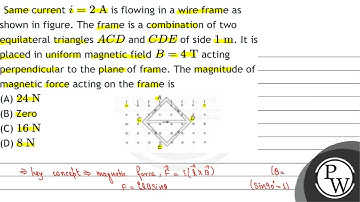 Same current i = 2 A is flowing in a wire frame as
shown in figure. The frame is a combination of two
equilateral triangles ACD and CDE of side 1 m. It is
placed in uniform magnetic field B = 4 T acting
perpendicular to the plane of frame. The magnitude of
magnetic force acting on the frame is
(A) 24 N
(B) Zero
(C) 16 N
(D) 8 N
A
C
D
E
⇒ key concept ⇒ magnetic force, F⃗ = i(l⃗ x B⃗)
F = ilBsinθ
(θ=
(sin90°=1)
PW